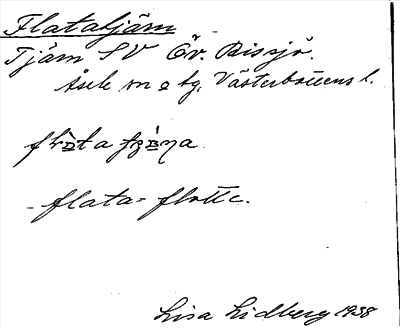 Flatatjärn
Tjärn SV Öv. Bissjö.
Åsele sn o tg, Västerbottens l.
flata = flotte.
Lisa Lidberg 1938